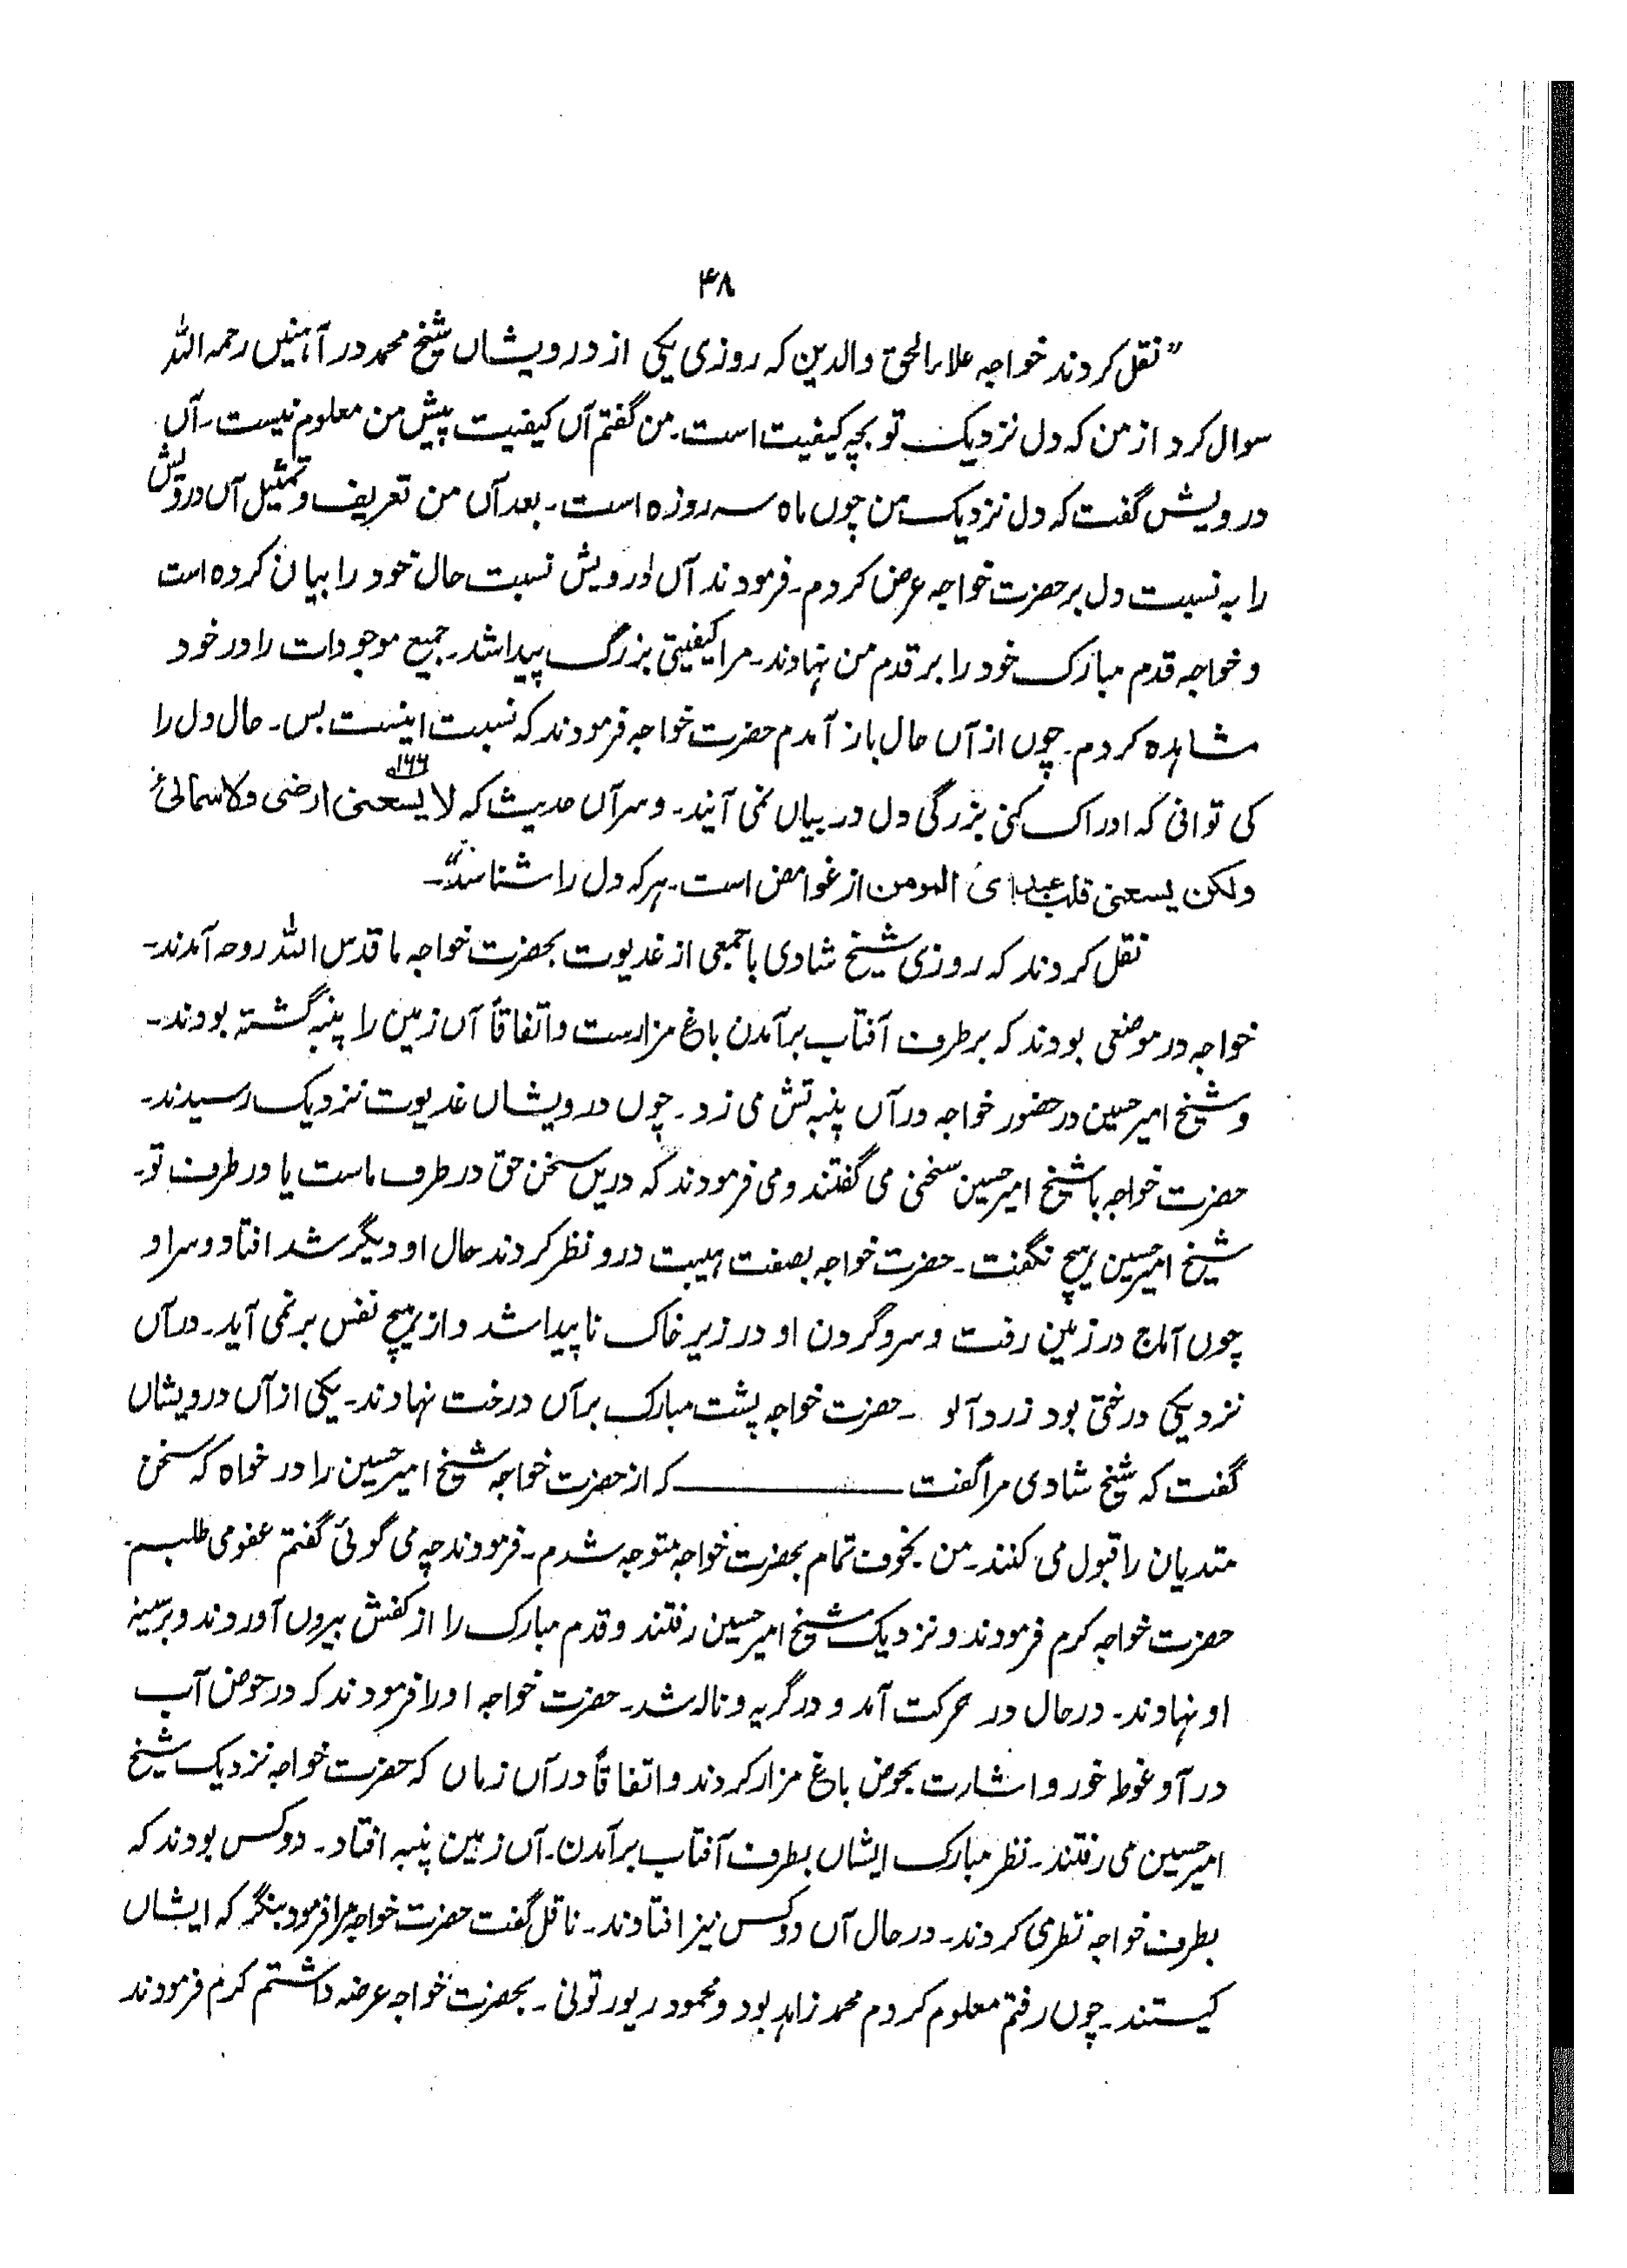 ۴۸
"نقل کردند خواجہ علاء الحق والدین کہ روزی یکی از درویشاں شیخ محمد در آہنیں رحمہ اللہ
سوال کرد از من کہ دل نزدیک تو بچہ کیفیت است۔ من گفتم آں کیفیت پیش من معلوم نیست۔ آں
درویش گفت کہ دل نزدیک من چوں ماہ سہ روزہ است۔ بعد آں من تعریف و تمثیل آں درویش
را بہ نسبت دل بر حضرت خواجہ عرض کردم۔ فرمودند آں درویش نسبت حال خود را بیان کردہ است
و خواجہ قدم مبارک خود را بر قدم من نہادند۔ مرا کیفیتی بزرگ پیدا شد۔ جمیع موجودات را در خود
مشاہدہ کردم۔ چوں از آں حال باز آمدم حضرت خواجہ فرمودند کہ نسبت اینست بس۔ حال دل را
کی توانی کہ ادراک کنی بزرگی دل در بیاں نمی آیند۔ و سر آں حدیث کہ لا یسعنی ارضی ولا سمائی
ولکن یسعنی قلب عبدی المومن از غوامض است۔ ہر کہ دل را شناسد"۔
نقل کردند کہ روزی شیخ شادی با جمعی از غدیوت بحضرت خواجہ ما قدس اللہ روحہ آمدند۔
خواجہ در موضعی بودند کہ بر طرف آفتاب بر آمدن باغ مزارست و اتفاقاً آں زمین را پنبہ گشتہ بودند۔
و شیخ امیر حسین در حضور خواجہ در آں پنبہ تش می زد۔ چوں درویشاں غدیوت نزدیک رسیدند۔
حضرت خواجہ با شیخ امیر حسین سخنی می گفتند و می فرمودند کہ دریں سخن حق در طرف ماست یا در طرف تو۔
شیخ امیر حسین ہیچ نگفت۔ حضرت خواجہ بصفت ہیبت درو نظر کردند حال او دیگر شد افتاد و سر او
چوں آماج در زمین رفت و سر و گردن او در زیر خاک ناپیدا شد و از ہیچ نفس بر نمی آید۔ در آں
نزدیکی درختی بود زرد آلو ۔ حضرت خواجہ پشت مبارک بر آں درخت نہادند۔ یکی از آں درویشاں
گفت کہ شیخ شادی مرا گفت ــــــــــ کہ از حضرت خواجہ شیخ امیر حسین را در خواہ کہ سخن
متدیان را قبول می کنند۔ من بخوف تمام بحضرت خواجہ متوجہ شدم۔ فرمودند چہ می گوئی گفتم عفو می طلبم۔
حضرت خواجہ کرم فرمودند و نزدیک شیخ امیر حسین رفتند و قدم مبارک را از کفش بیروں آوردند و بر سینہ
او نہادند۔ در حال در حرکت آمد و در گریہ و نالہ شد۔ حضرت خواجہ او را فرمودند کہ در حوض آب
در آ و غوط خور و اشارت بحوض باغ مزار کردند و اتفاقاً در آں زماں کہ حضرت خواجہ نزدیک شیخ
امیر حسین می رفتند۔ نظر مبارک ایشاں بطرف آفتاب بر آمدن۔ آں زمین پنبہ افتاد۔ دو کس بودند کہ
بطرف خواجہ نظری کردند۔ در حال آں دو کس نیز افتادند۔ ناقل گفت حضرت خواجہ مرا فرمود بنگر کہ ایشاں
کیستند۔ چوں رفتم معلوم کردم محمد زاہد بود و محمود ریورتونی۔ بحضرت خواجہ عرضہ داشتم کرم فرمودند